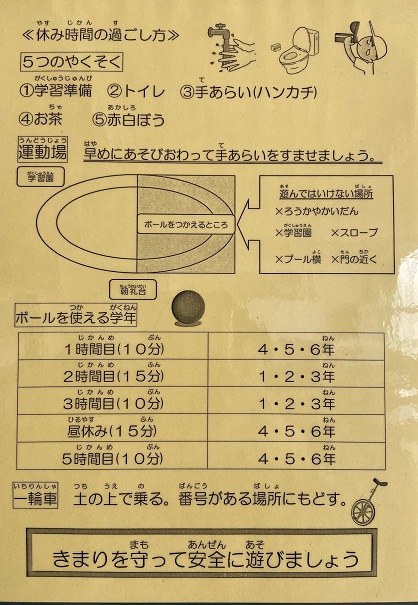 ≪休み時間の過ごし方≫
5つのやくそく
①学習準備 ②トイレ ③手あらい(ハンカチ)
④お茶 ⑤赤白ぼう
運動場 早めにあそびおわって手あらいをすませましょう。
学習園
ボールをつかえるところ
遊んではいけない場所
×ろうかやかいだん
×学習園 ×スロープ
×プール横 ×門の近く
朝礼台
ボールを使える学年
1時間目(10分) 4・5・6年
2時間目(15分) 1・2・3年
3時間目(10分) 1・2・3年
昼休み(15分) 4・5・6年
5時間目(10分) 4・5・6年
一輪車 土の上で乗る。番号がある場所にもどす。
きまりを守って安全に遊びましょう